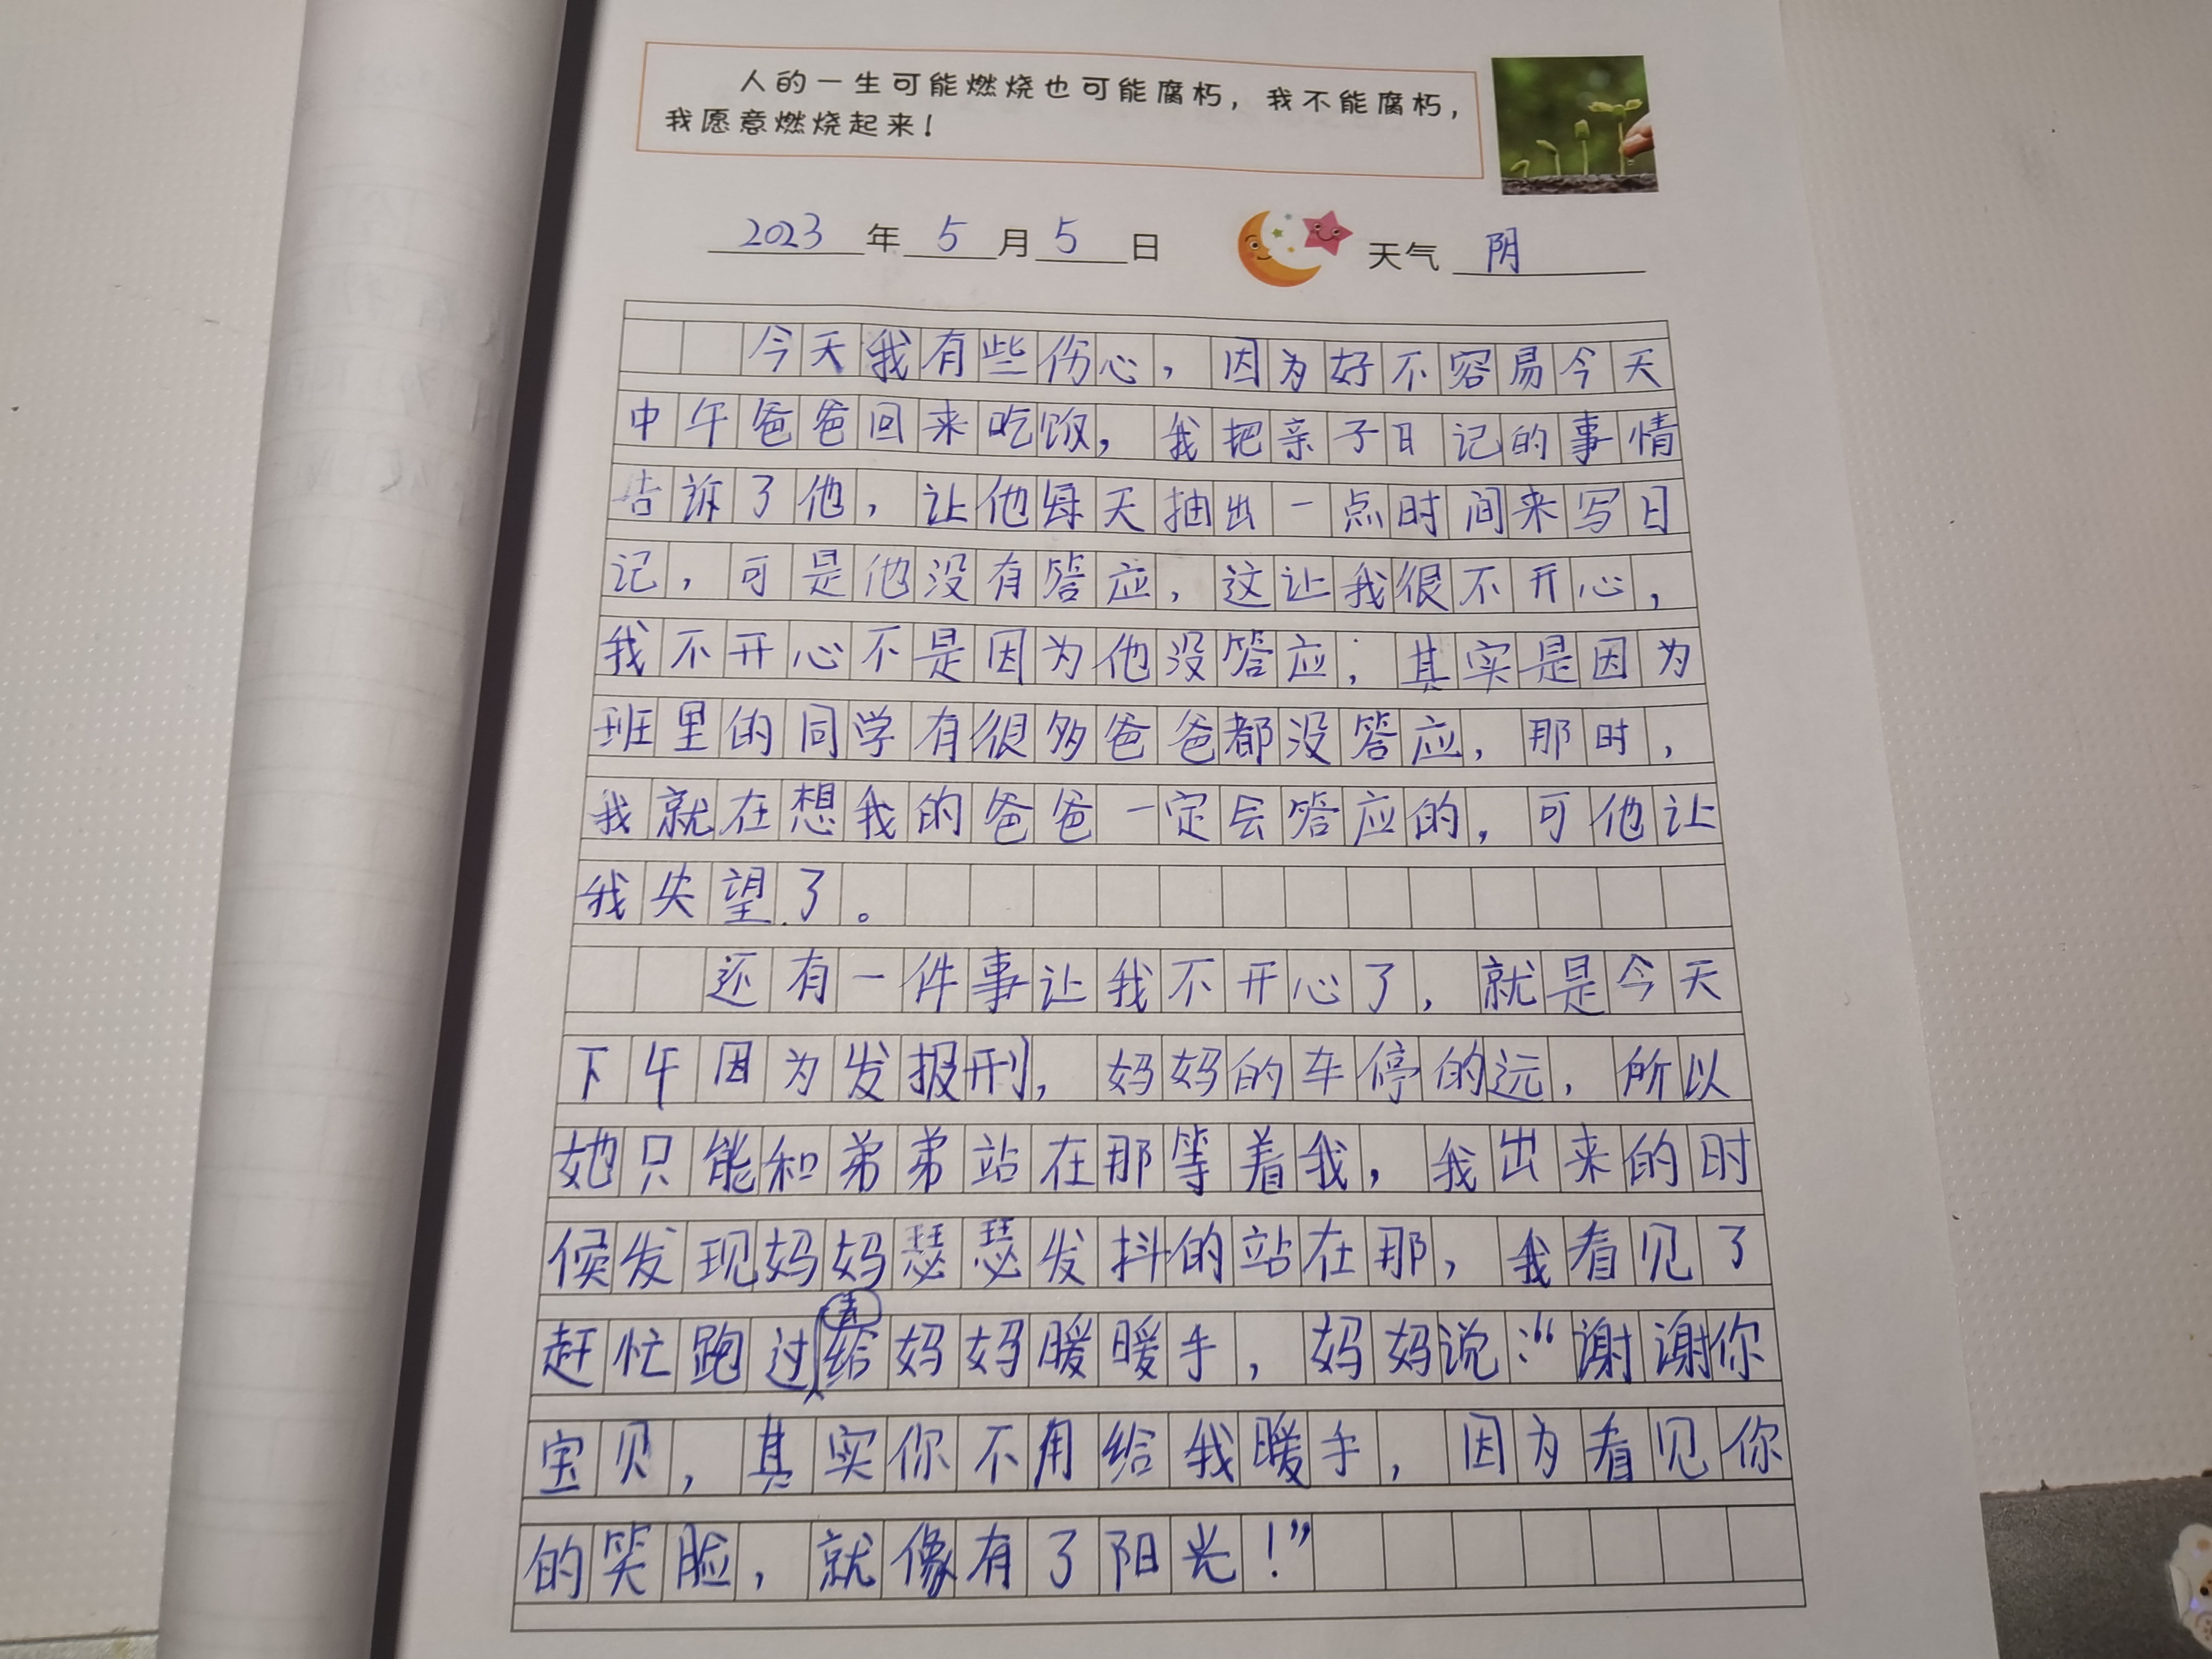 人的一生可能燃烧也可能腐朽，我不能腐朽，
我愿意燃烧起来！
2023年5月5日 天气 阴
今天我有些伤心，因为好不容易今天
中午爸爸回来吃饭，我把亲子日记的事情
告诉了他，让他每天抽出一点时间来写日
记，可是他没有答应，这让我很不开心，
我不开心不是因为他没答应；其实是因为
班里的同学有很多爸爸都没答应，那时，
我就在想我的爸爸一定会答应的，可他让
我失望了。
还有一件事让我不开心了，就是今天
下午因为发报刊，妈妈的车停的远，所以
她只能和弟弟站在那等着我，我出来的时
候发现妈妈瑟瑟发抖的站在那，我看见了
赶忙跑过去给妈妈暖暖手，妈妈说：“谢谢你
宝贝，其实你不用给我暖手，因为看见你
的笑脸，就像有了阳光！”